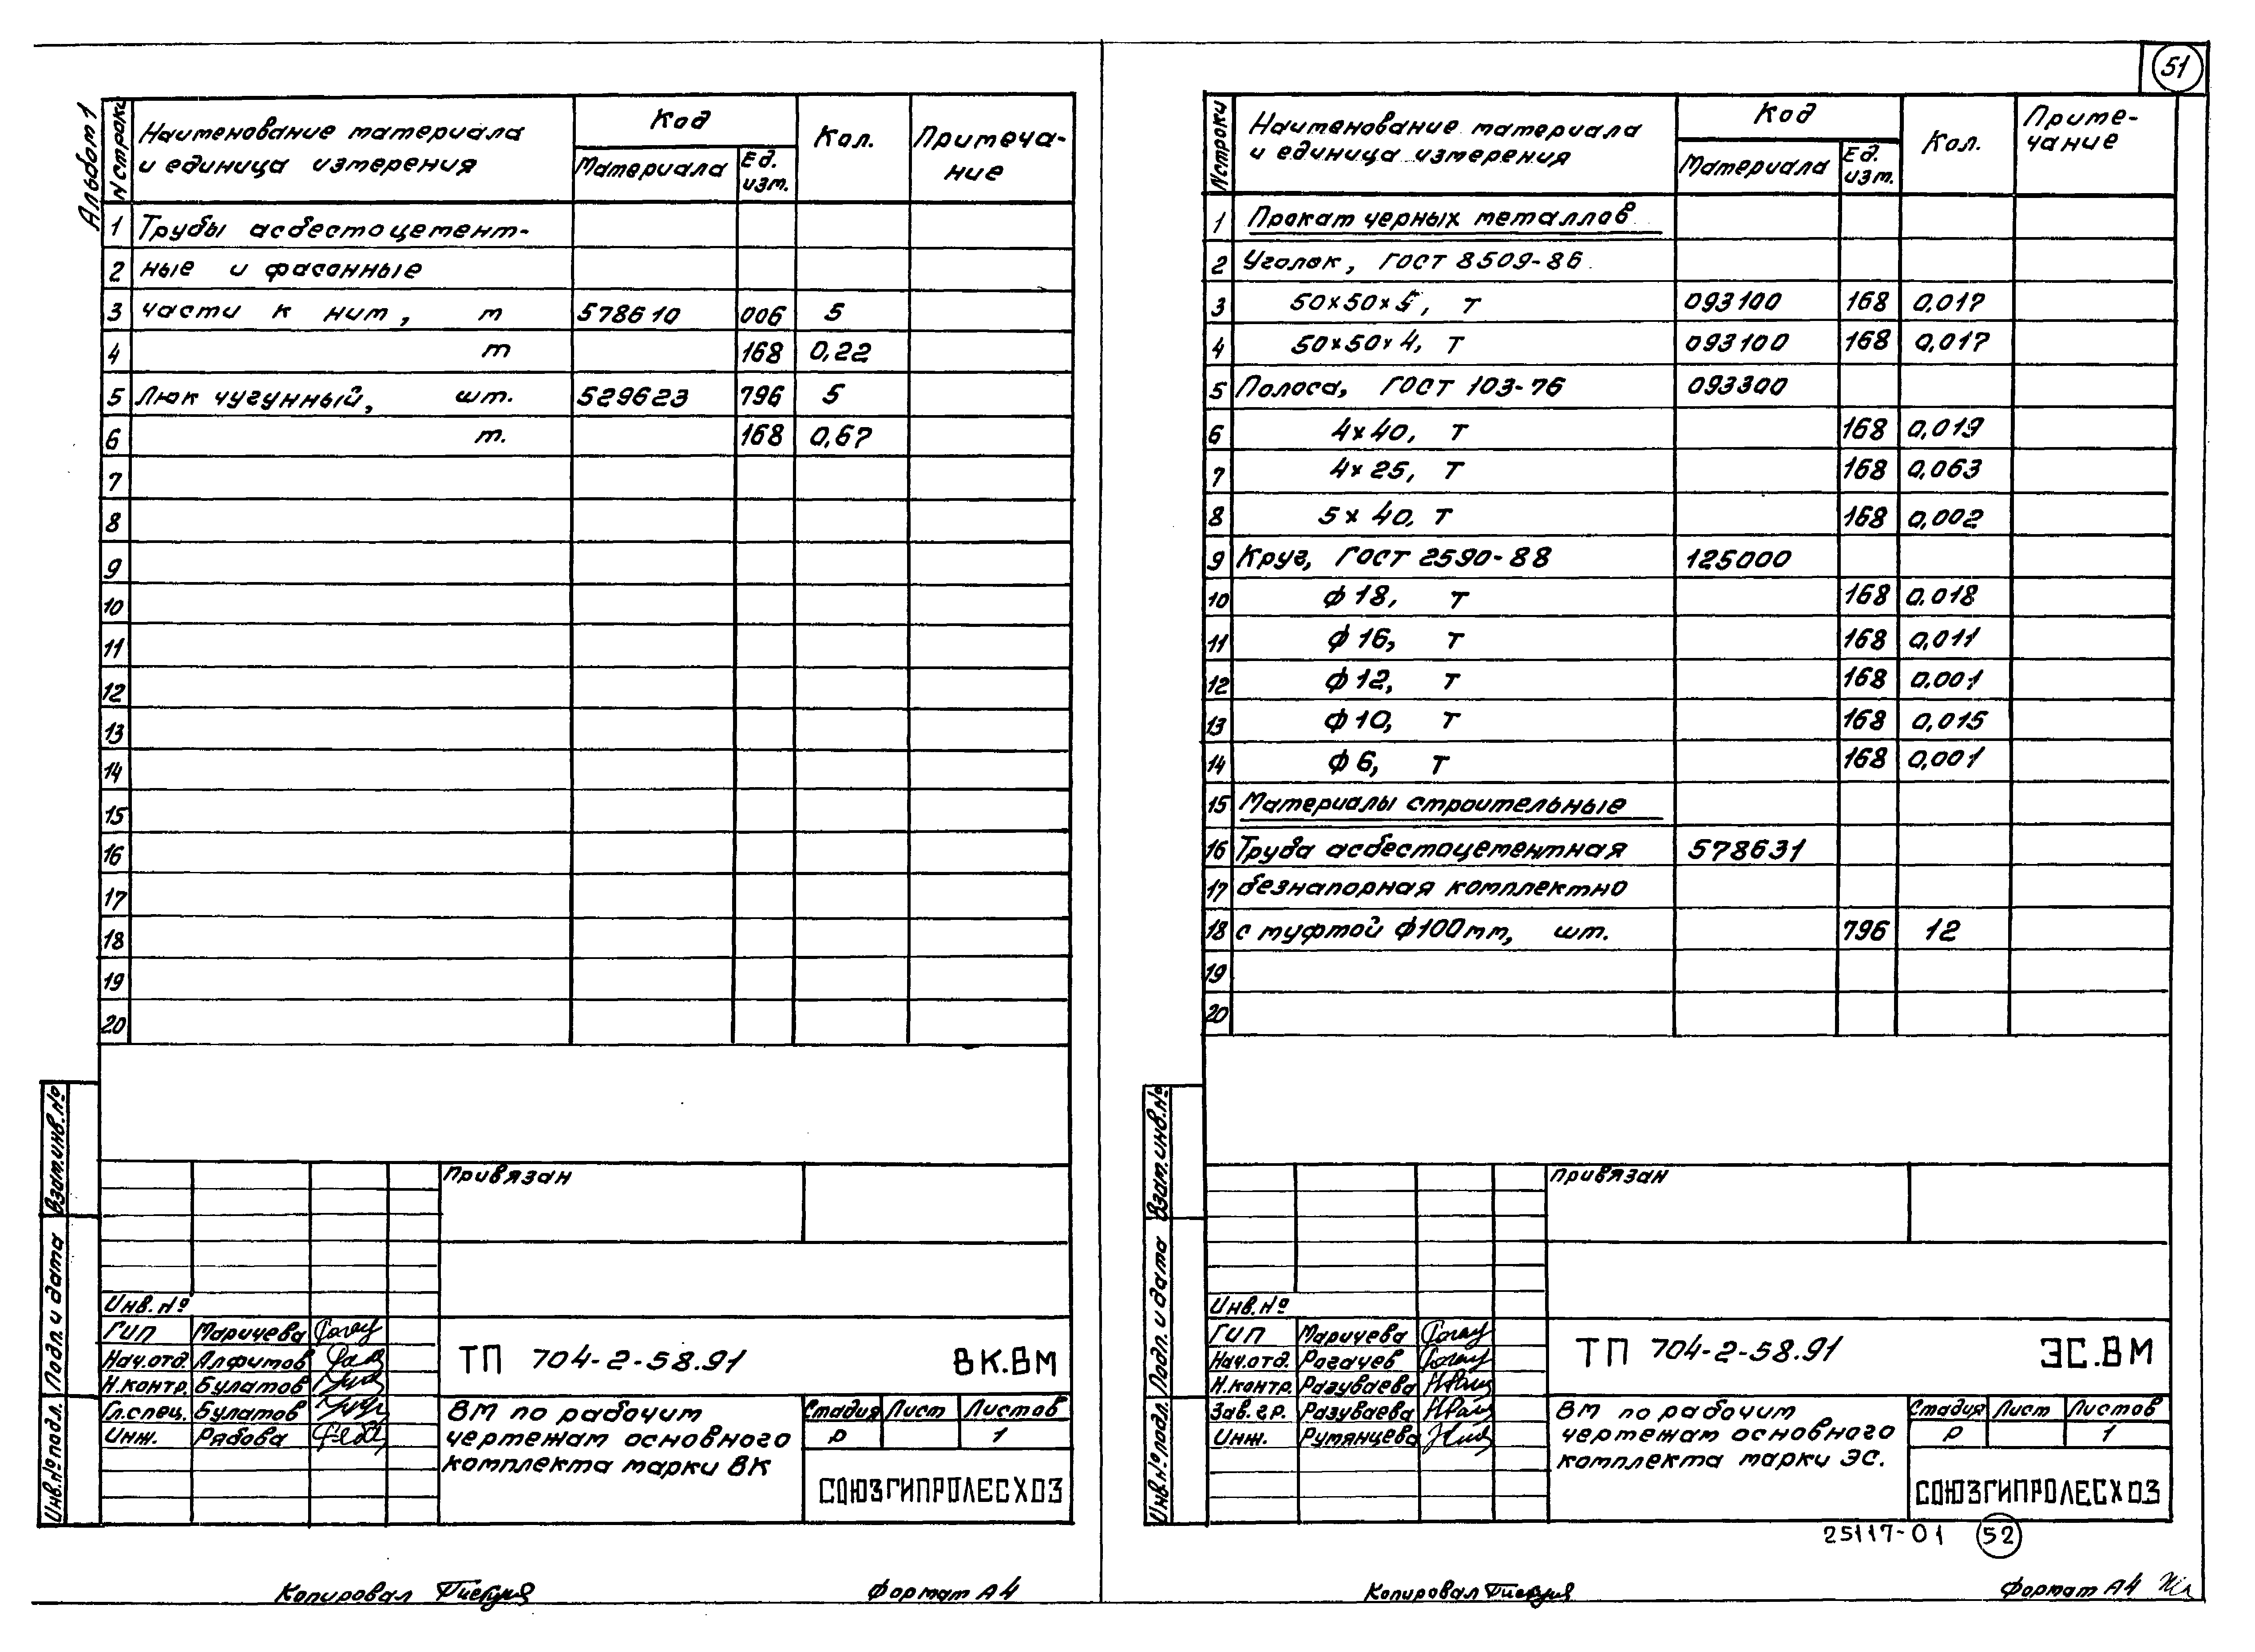 51
Альбом 1
N строки | Наименование материала и единица измерения | Код | Кол. | Примеча-ние
Материала | Ед. изм.
1 Трубы асбестоцемент-
2 ные и фасонные
3 части к ним, м 578610 006 5
4 т 168 0,22
5 Люк чугунный, шт. 529623 796 5
6 т. 168 0,67
7
8
9
10
11
12
13
14
15
16
17
18
19
20
Взам.инв.№
Подп. и дата
Инв.№ подл.
Привязан
Инв.№
ГИП Маричева
Нач.отд. Алфимов
Н.контр. Булатов
Гл.спец. Булатов
Инж. Рябова
ТП 704-2-58.91 ВК.ВМ
ВМ по рабочим
чертежам основного
комплекта марки ВК
Стадия Лист Листов
Р 1
СОЮЗГИПРОЛЕСХОЗ
Копировал
Формат А4
N строки | Наименование материала и единица измерения | Код | Кол. | Приме-чание
Материала | Ед. изм.
1 Прокат черных металлов
2 Уголок, ГОСТ 8509-86
3 50×50×5, Т 093100 168 0,017
4 50×50×4, Т 093100 168 0,017
5 Полоса, ГОСТ 103-76 093300
6 4×40, Т 168 0,019
7 4×25, Т 168 0,063
8 5×40, Т 168 0,002
9 Круг, ГОСТ 2590-88 125000
10 ф 18, Т 168 0,018
11 ф 16, Т 168 0,011
12 ф 12, Т 168 0,001
13 ф 10, Т 168 0,015
14 ф 6, Т 168 0,001
15 Материалы строительные
16 Труба асбестоцементная 578631
17 безнапорная комплектно
18 с муфтой ф100мм, шт. 796 12
19
20
Взам.инв.№
Подп. и дата
Инв.№ подл.
Привязан
Инв.№
ГИП Маричева
Нач.отд. Рогачев
Н.контр. Разуваева
Зав.гр. Разуваева
Инж. Румянцева
ТП 704-2-58.91 ЭС.ВМ
ВМ по рабочим
чертежам основного
комплекта марки ЭС.
Стадия Лист Листов
Р 1
СОЮЗГИПРОЛЕСХОЗ
25117-01 52
Копировал
Формат А4